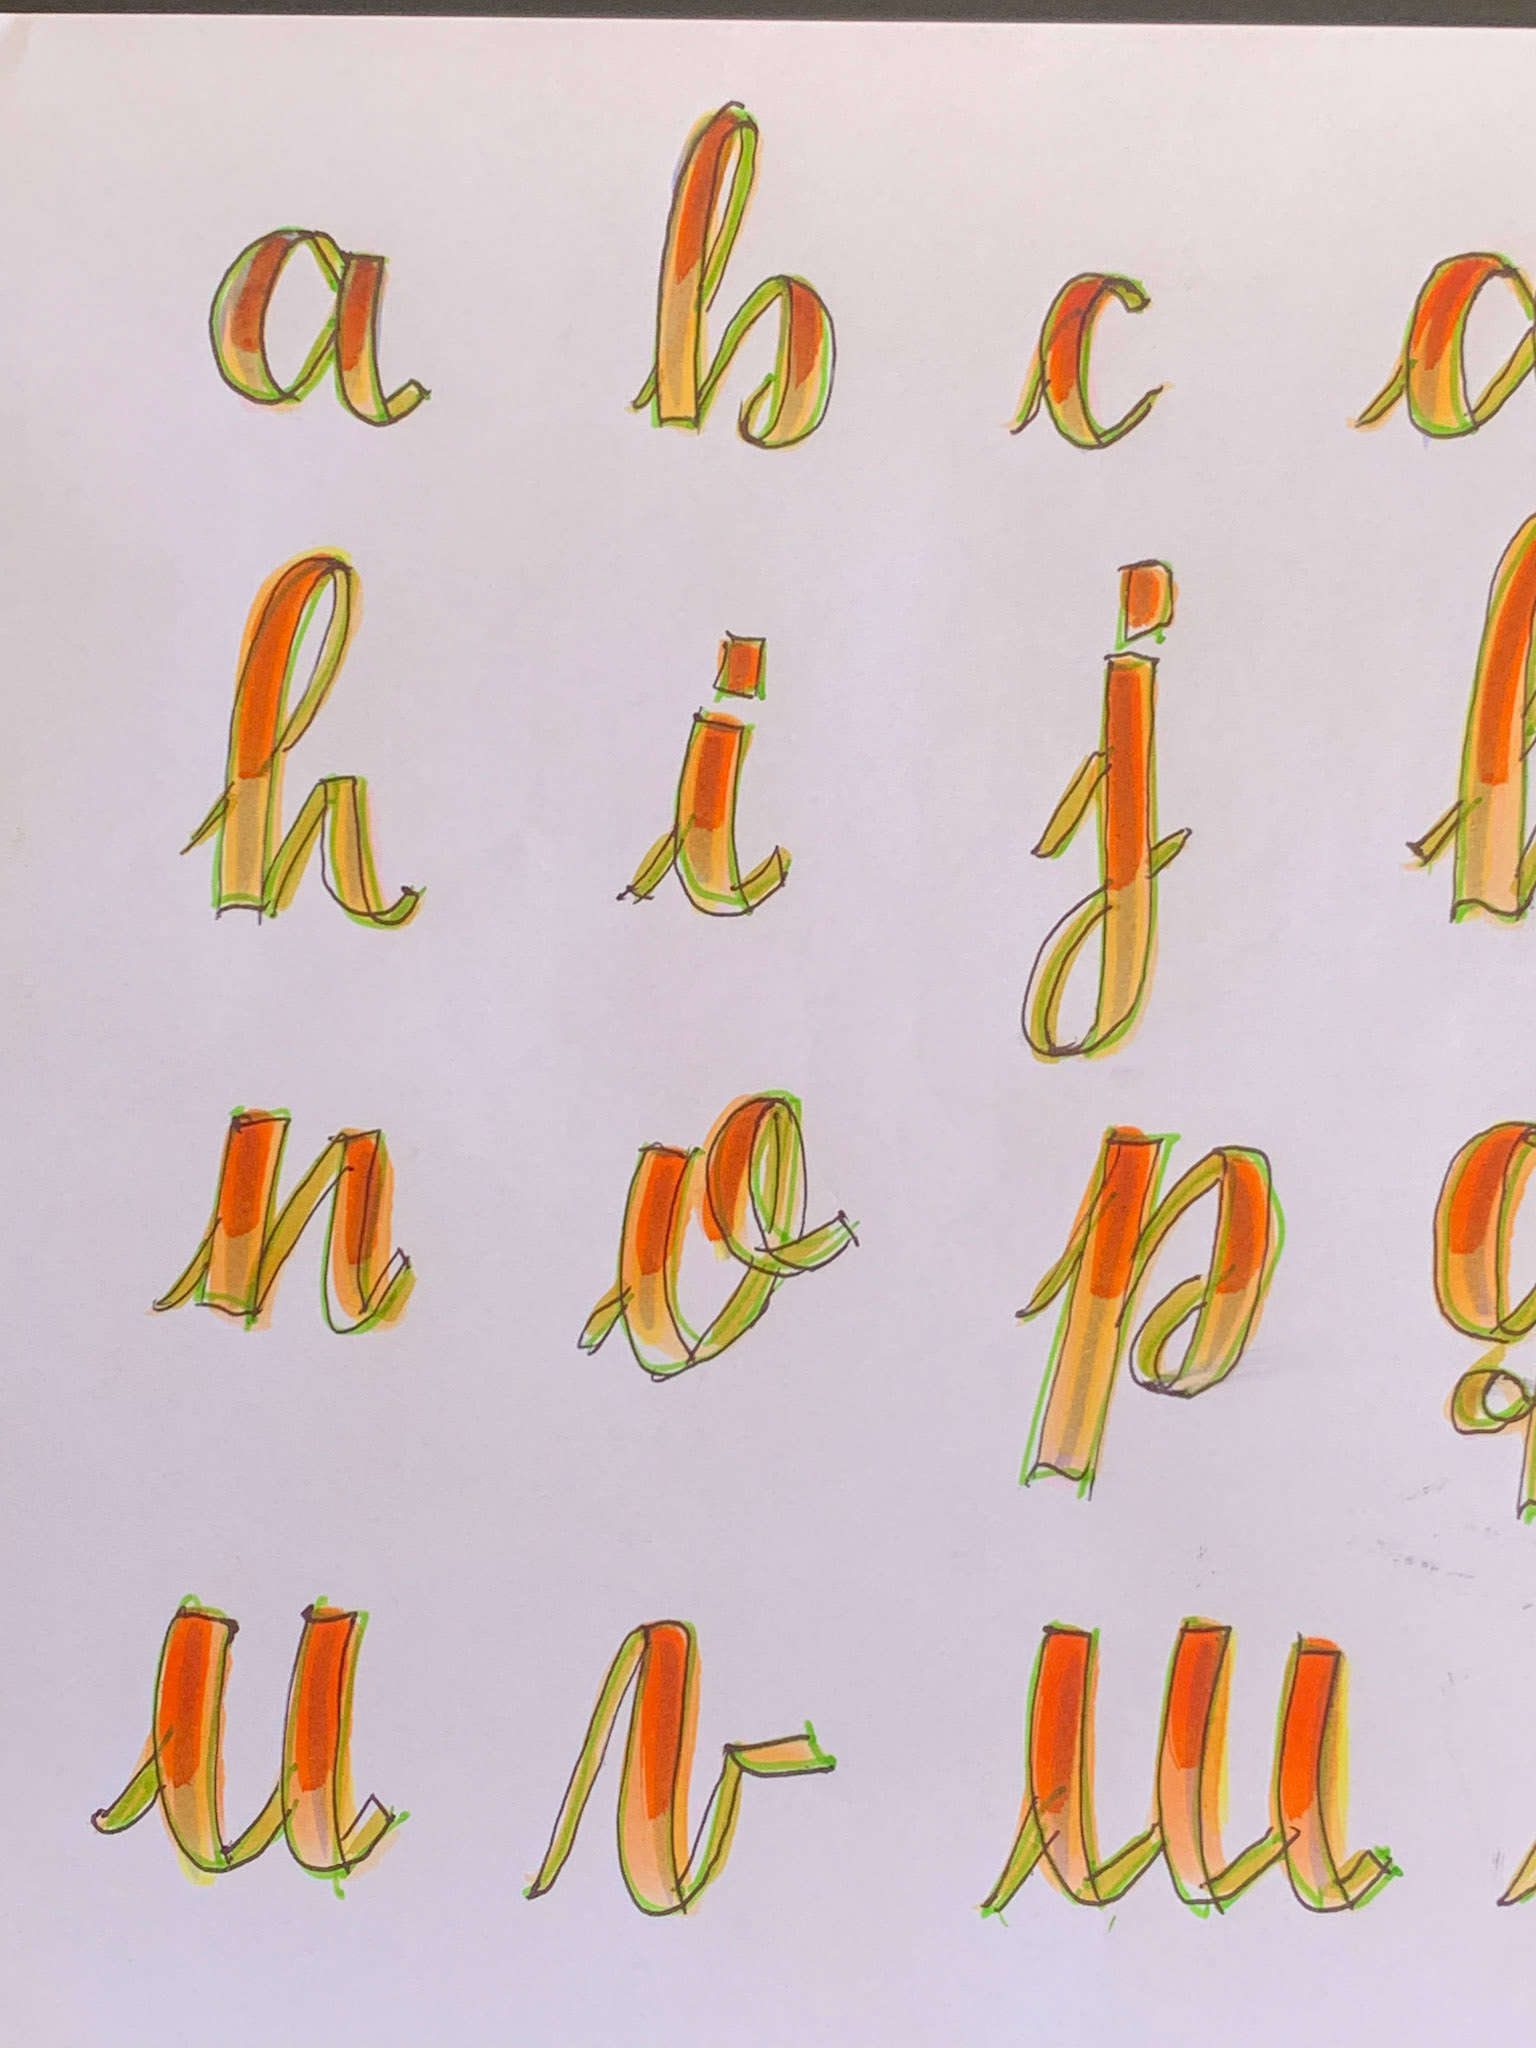 a b c d
h i j k
n o p q
u v w